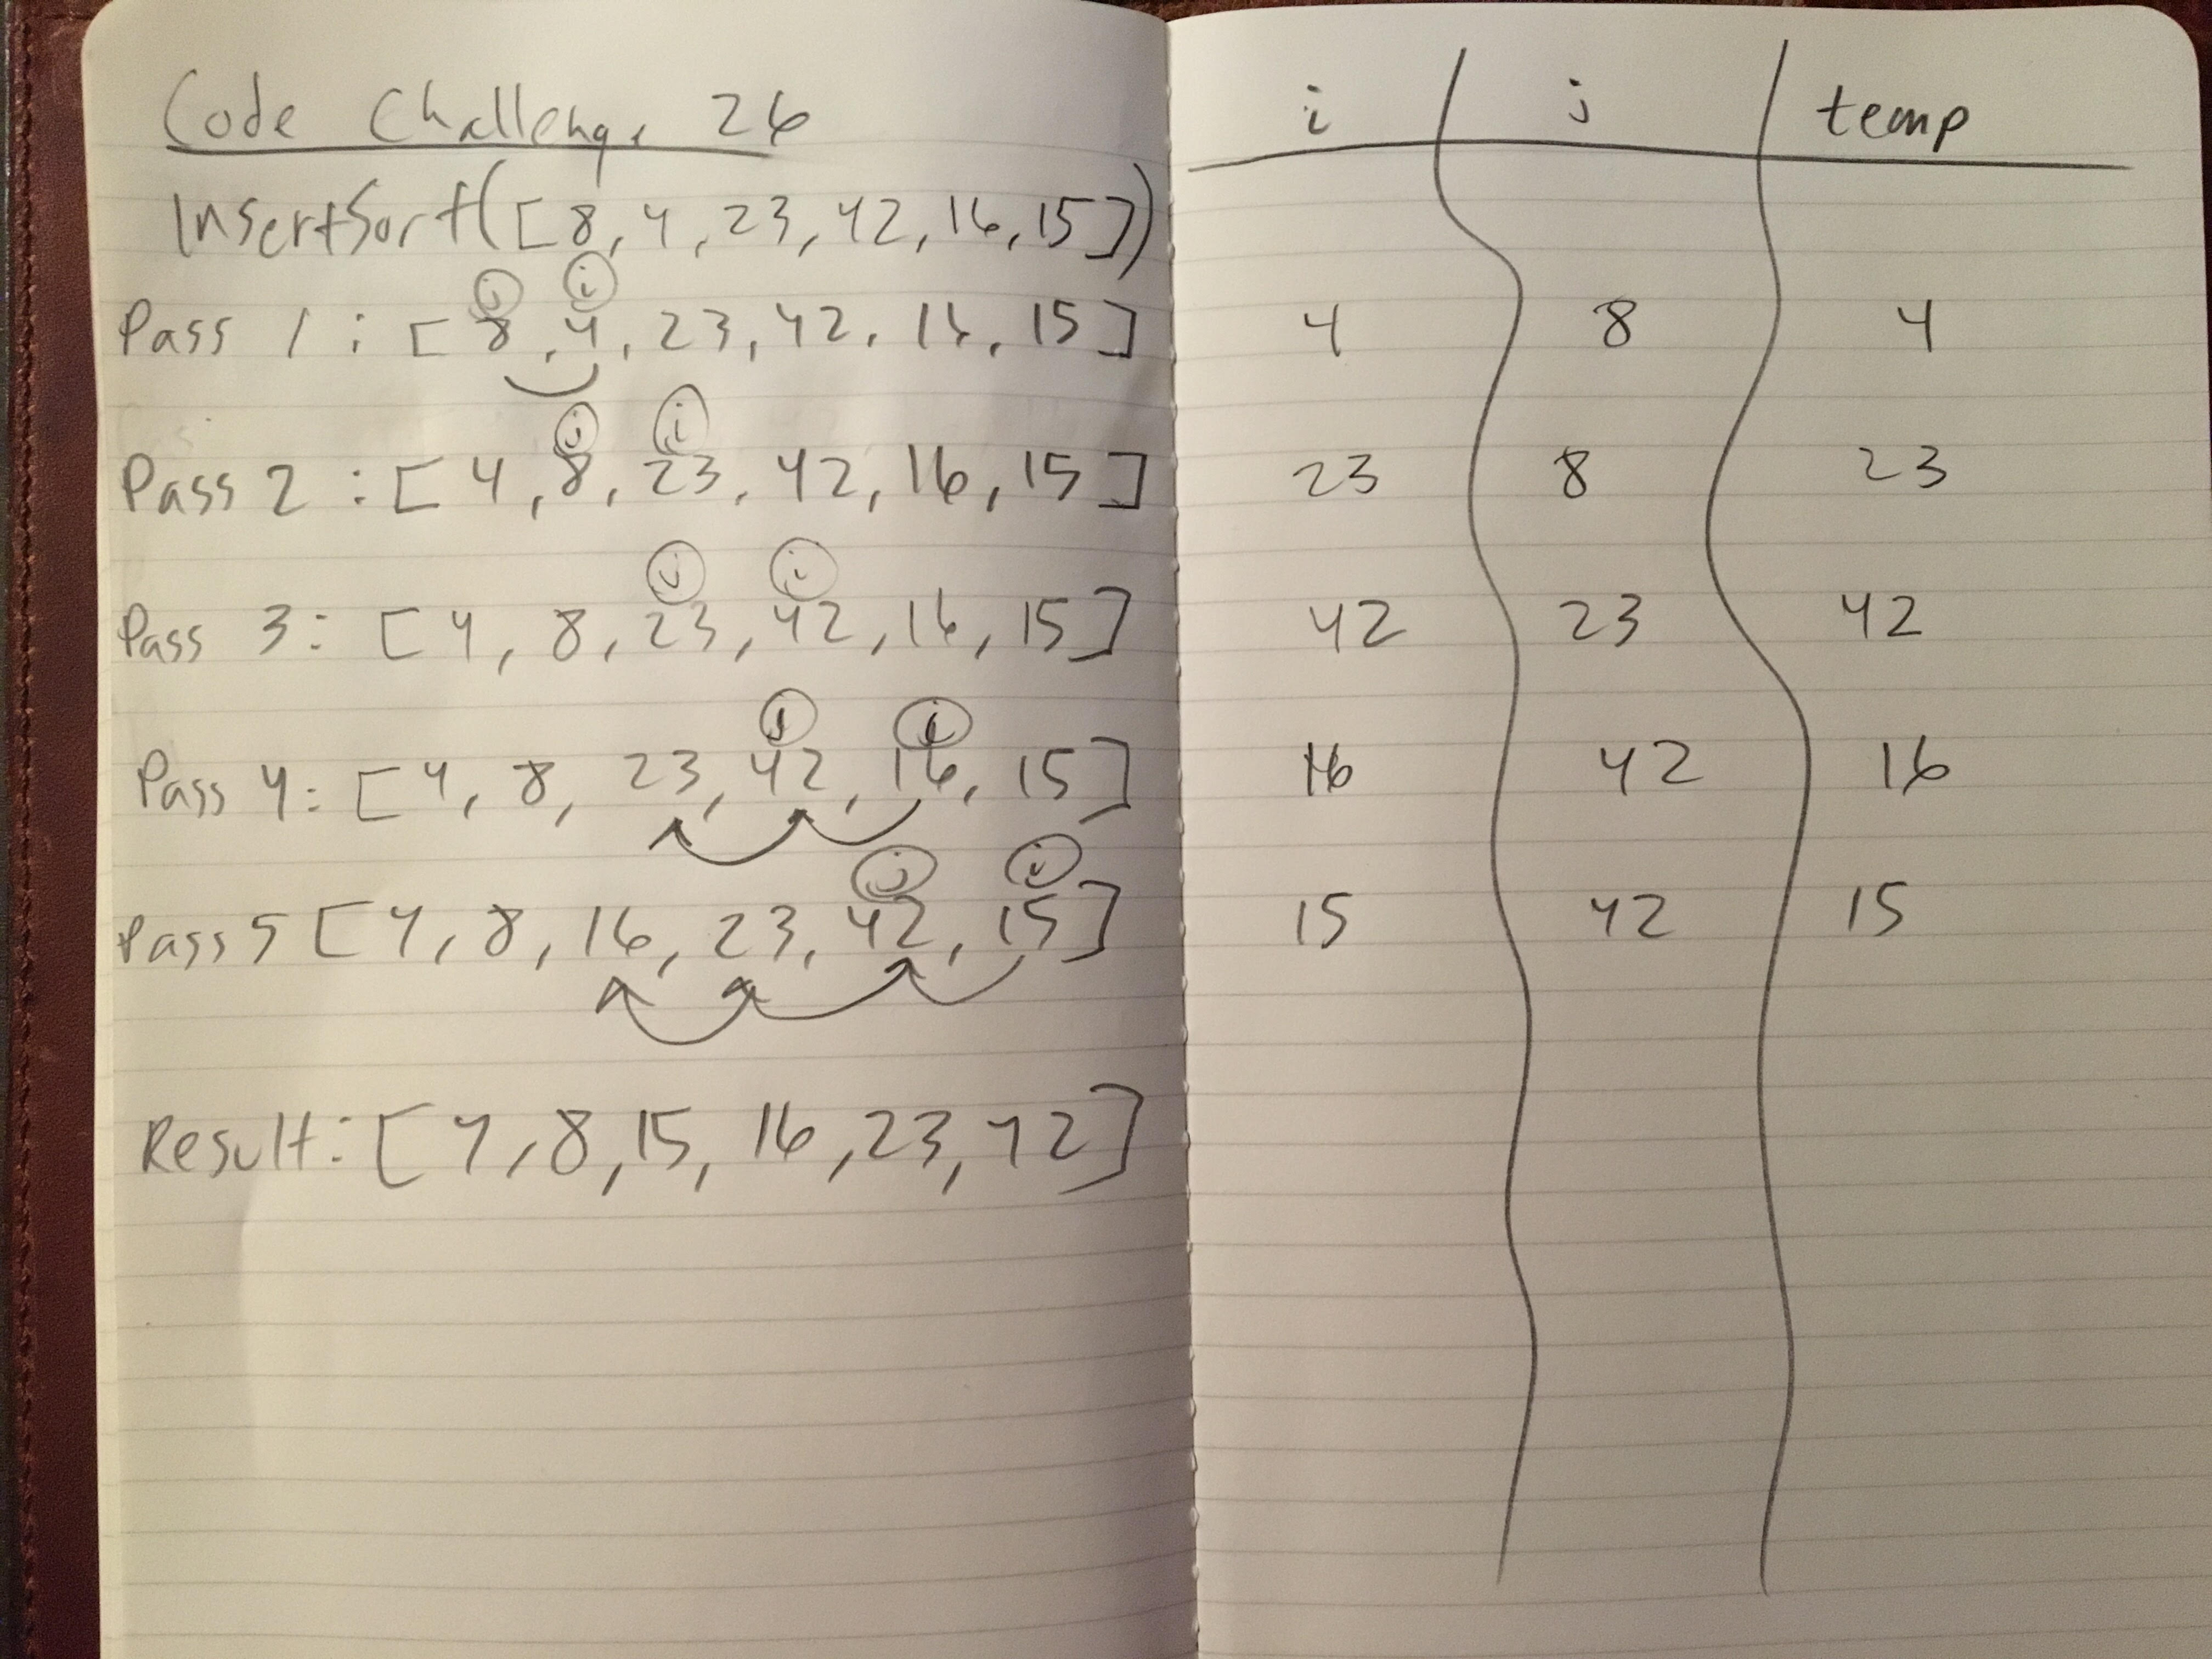 Code Challenge 26
InsertSort([8, 4, 23, 42, 16, 15])
j i
Pass 1 : [8, 4, 23, 42, 16, 15]
j i
Pass 2 : [4, 8, 23, 42, 16, 15]
j i
Pass 3: [4, 8, 23, 42, 16, 15]
j i
Pass 4: [4, 8, 23, 42, 16, 15]
j i
Pass 5 [4, 8, 16, 23, 42, 15]
Result: [4, 8, 15, 16, 23, 42]
i j temp
4 8 4
23 8 23
42 23 42
16 42 16
15 42 15